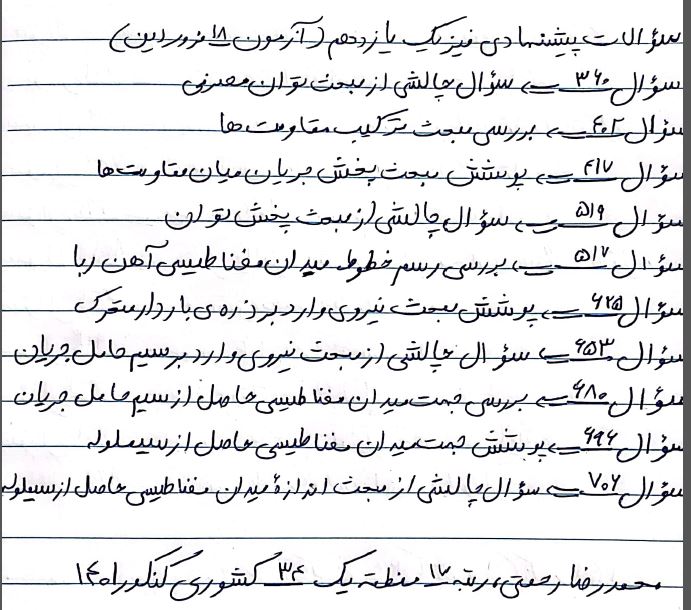 سؤالات پیشنهادی فیزیک یازدهم (آزمون ۱۸ فروردین)
سؤال ۳۶۰ ⇐ سؤال چالشی از مبحث توان مصرفی
سؤال ۴۰۲ ⇐ بررسی مبحث ترکیب مقاومت ها
سؤال ۴۱۷ ⇐ پوشش مبحث پخش جریان میان مقاومت ها
سؤال ۵۱۹ ⇐ سؤال چالشی از مبحث پخش توان
سؤال ۵۱۷ ⇐ بررسی رسم خطوط میدان مغناطیسی آهن ربا
سؤال ۶۲۵ ⇐ پوشش مبحث نیروی وارد بر ذره ی باردار متحرک
سؤال ۶۵۳ ⇐ سؤال چالشی از مبحث نیروی وارد بر سیم حامل جریان
سؤال ۶۸۰ ⇐ بررسی جهت میدان مغناطیسی حاصل از سیم حامل جریان
سؤال ۶۹۶ ⇐ پوشش جهت میدان مغناطیسی حاصل از سیملوله
سؤال ۷۰۶ ⇐ سؤال چالشی از مبحث اندازهٔ میدان مغناطیسی حاصل از سیملوله
محمدرضا رحمتی، رتبه ۱۷ منطقه یک ۳۴ کشوری کنکور ۱۴۰۱